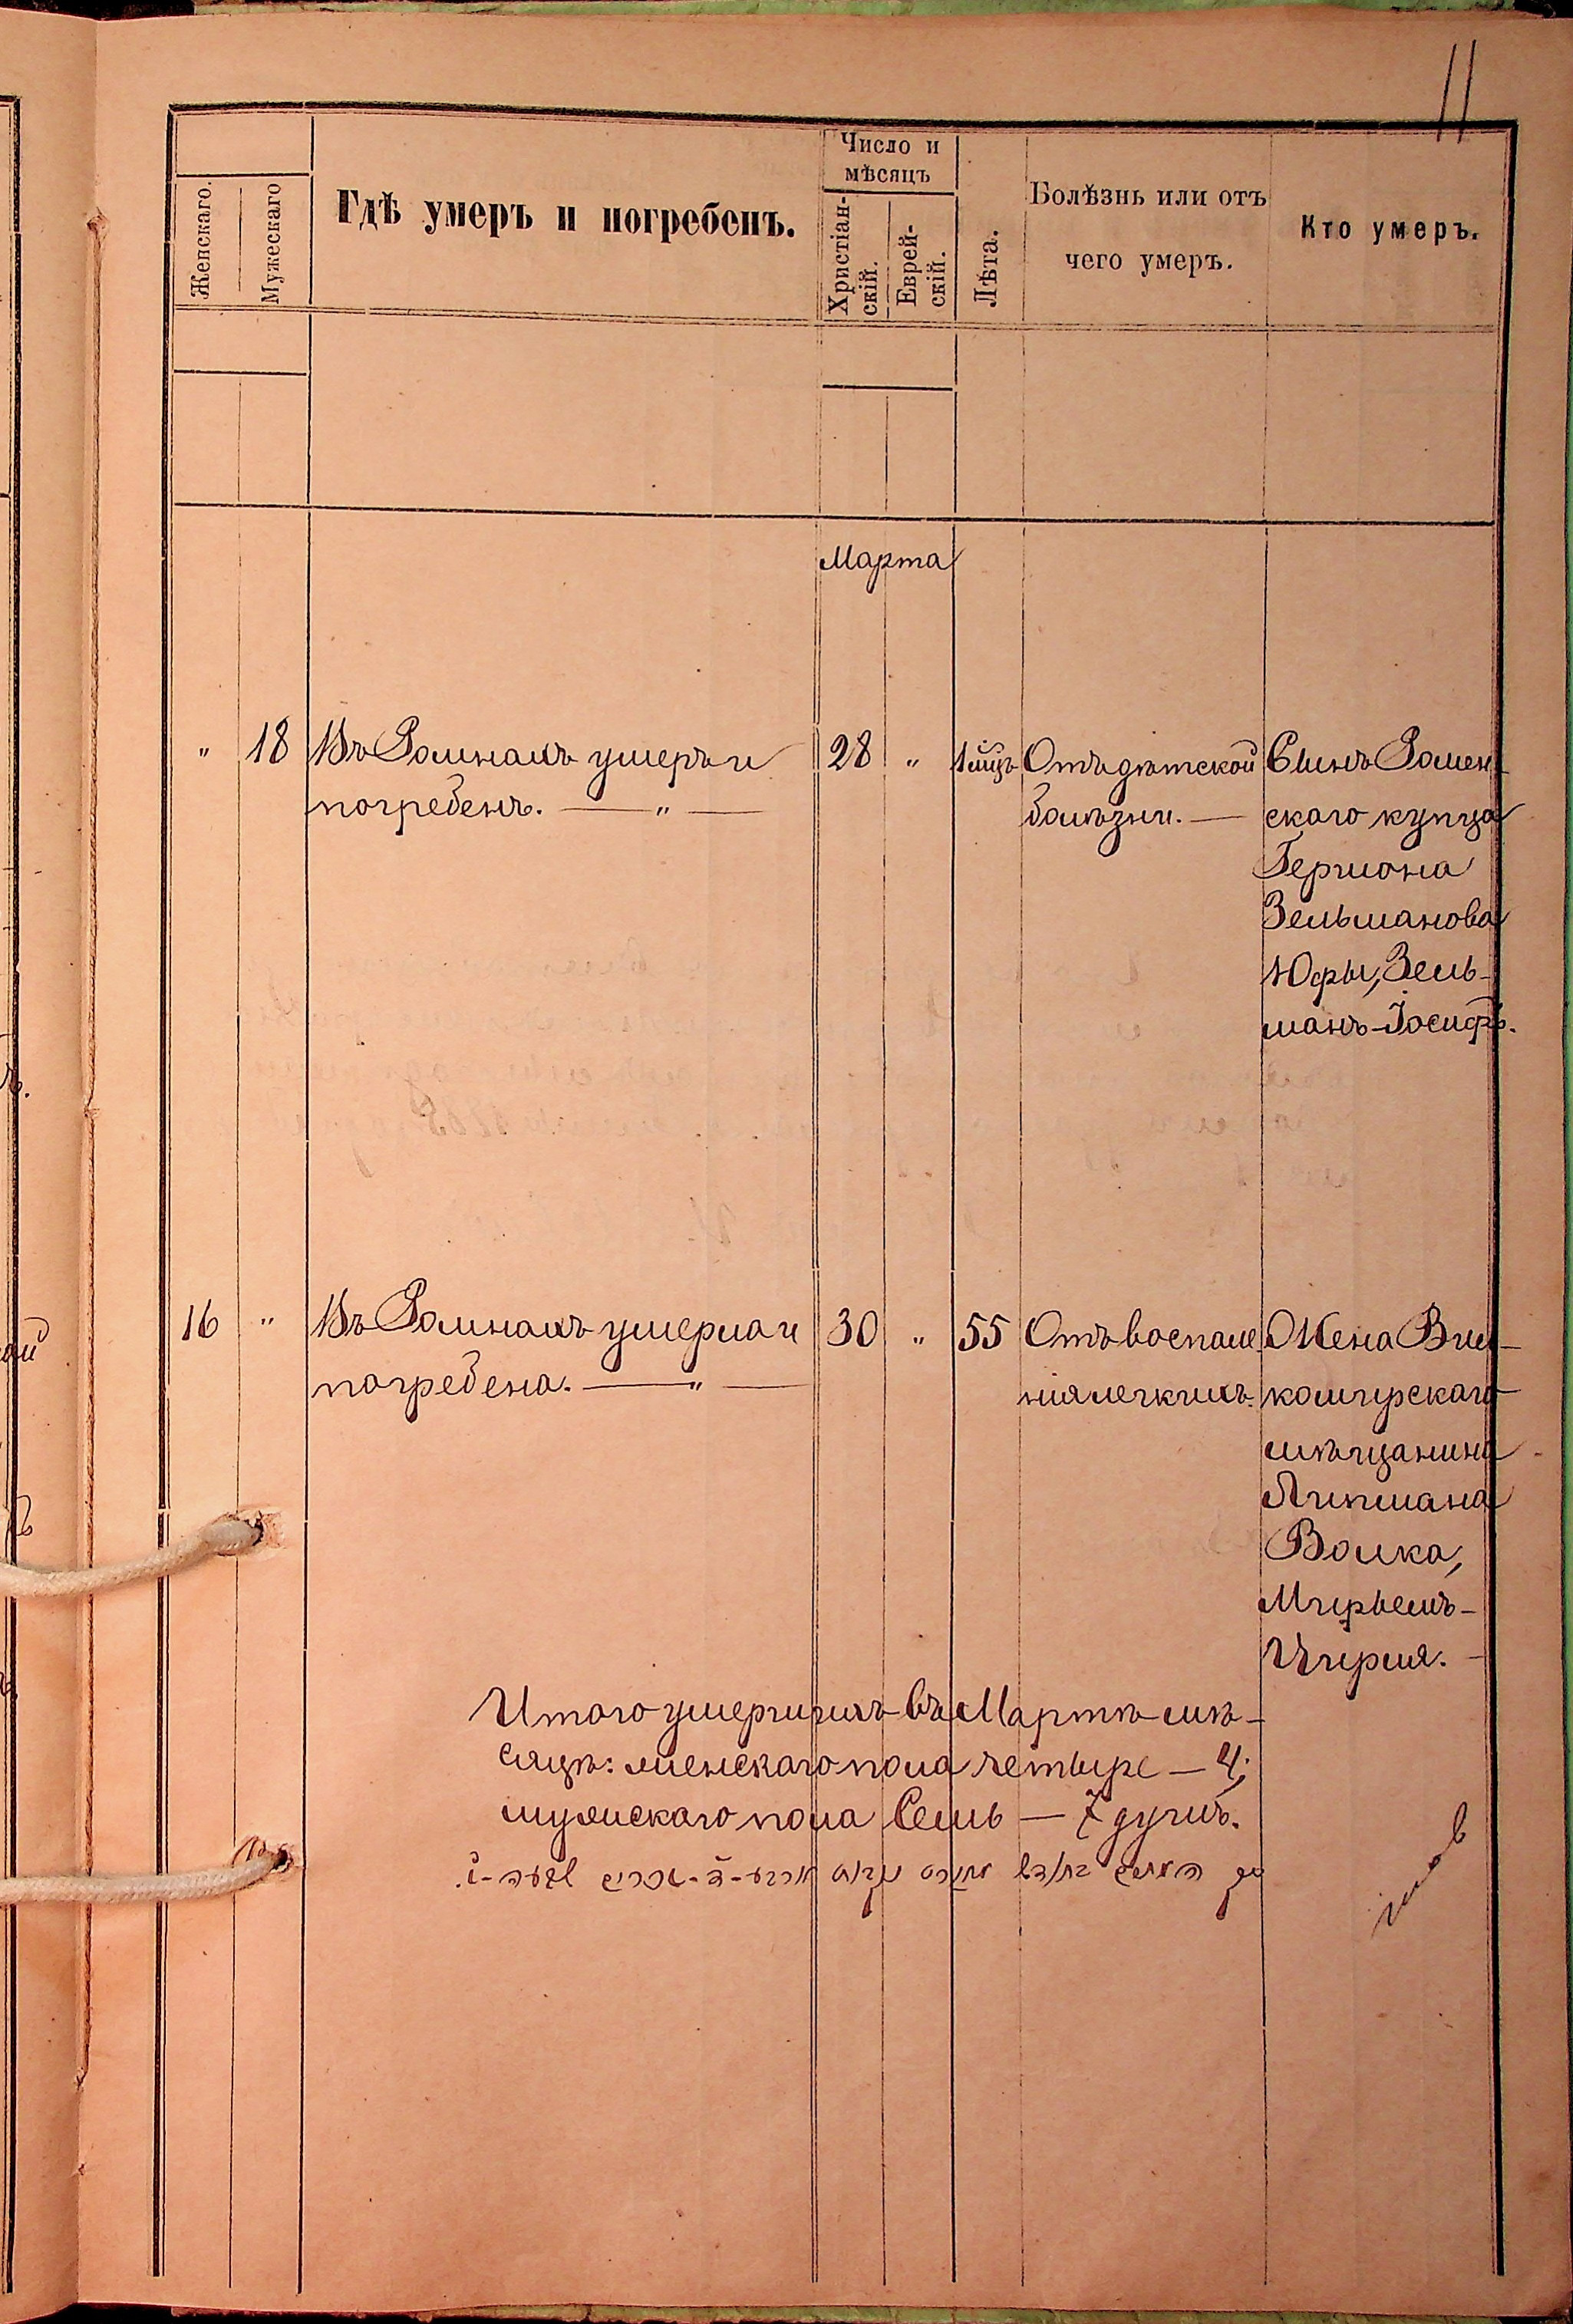 11
Женскаго.
Мужескаго
Гдѣ умеръ и погребенъ.
Число и
мѣсяцъ
Христіан-
скій.
Еврей-
скій.
Лѣта.
Болѣзнь или отъ
чего умеръ.
Кто умеръ.
Марта
" 18 Въ Ромнахъ умеръ и
погребенъ. — " —
28 " 1 мцъ
Отъ дѣтской
болѣзни. —
Сынъ Ромен-
скаго купца
Гершона
Зельманова
Юфы, Зель-
манъ-Іосифъ.
16 " Въ Ромнахъ умерла и
погребена. — " —
30 " 55
Отъ воспале-
нія легкихъ.
Жена Виль-
комирскаго
мѣщанина
Липмана
Волка,
Мирьемъ-
Цирля.
Итого умершихъ въ Мартѣ мѣ-
сяцѣ: женскаго пола четыре — 4;
мужскаго пола Семь — 7 душъ.